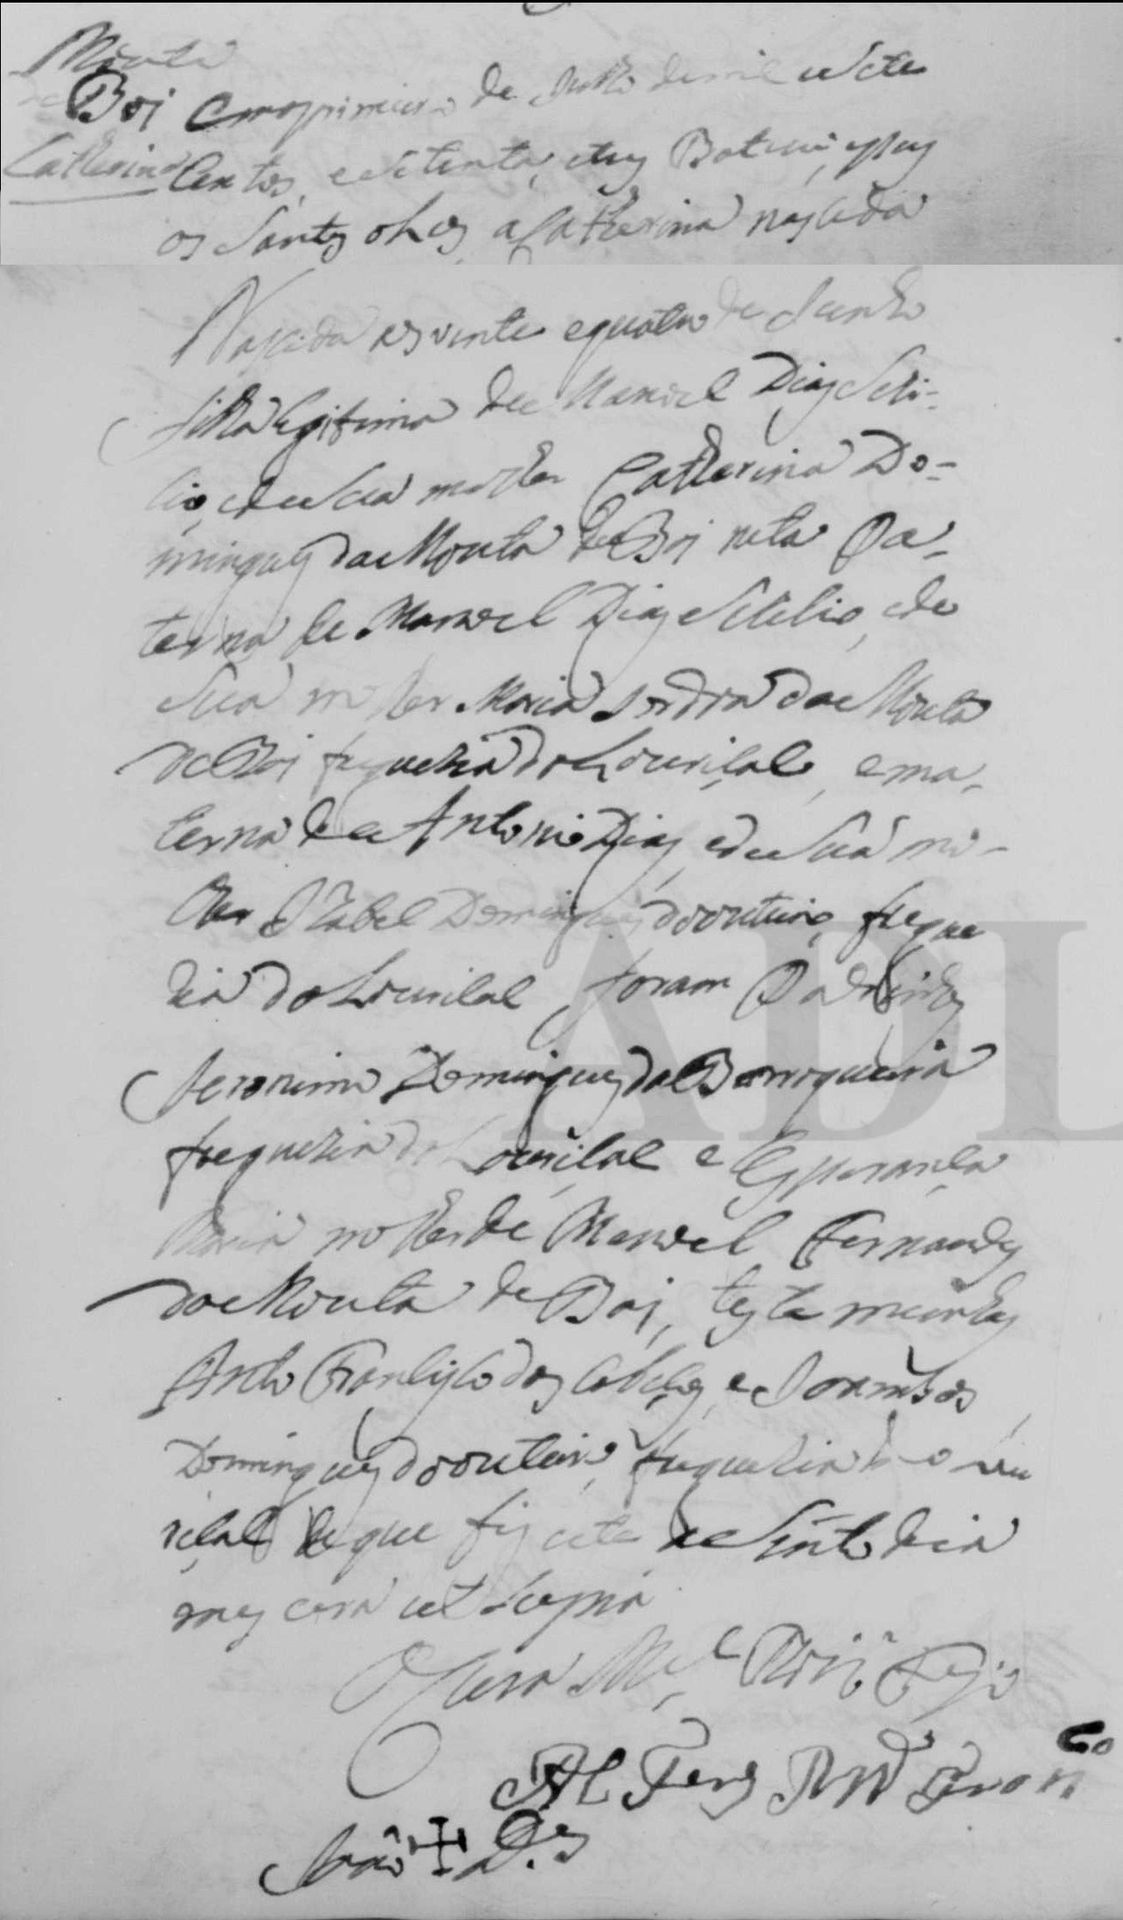 Mouta
de Boi
Catherina
Em o primeiro de Julho de mil e sete
centos, e setenta, e tres Batizei, e pus
os Santos oleos a Catherina nascida
Nascida aos vinte e quatro de Junho
filha legitima de Manoel Dias Seti-
lio, e de sua molher Catherina Do-
mingues da Mouta de Boi neta Pa-
terna de Manoel Dias e Setilio, e de
sua molher Maria da Mouta
de Boi freguezia do Louriçal, e ma-
terna de Antonio Dias, e de sua mo-
lher Izabel Domingues do outeiro, fregue
zia do Louriçal, foram Padrinhos
Jeronimo Domingues da Borroqueira
freguezia do Louriçal e Esperança
Maria molher de Manoel Fernandes
da Mouta de Boi, testemunhas
Anto Francisco dos Cabeços, e
Domingues do outeiro, freguezia do Lou
riçal de que fiz este asento dia
mes era ut supra
O Cura Mel Roiz Feijo
ADL
João + Ds